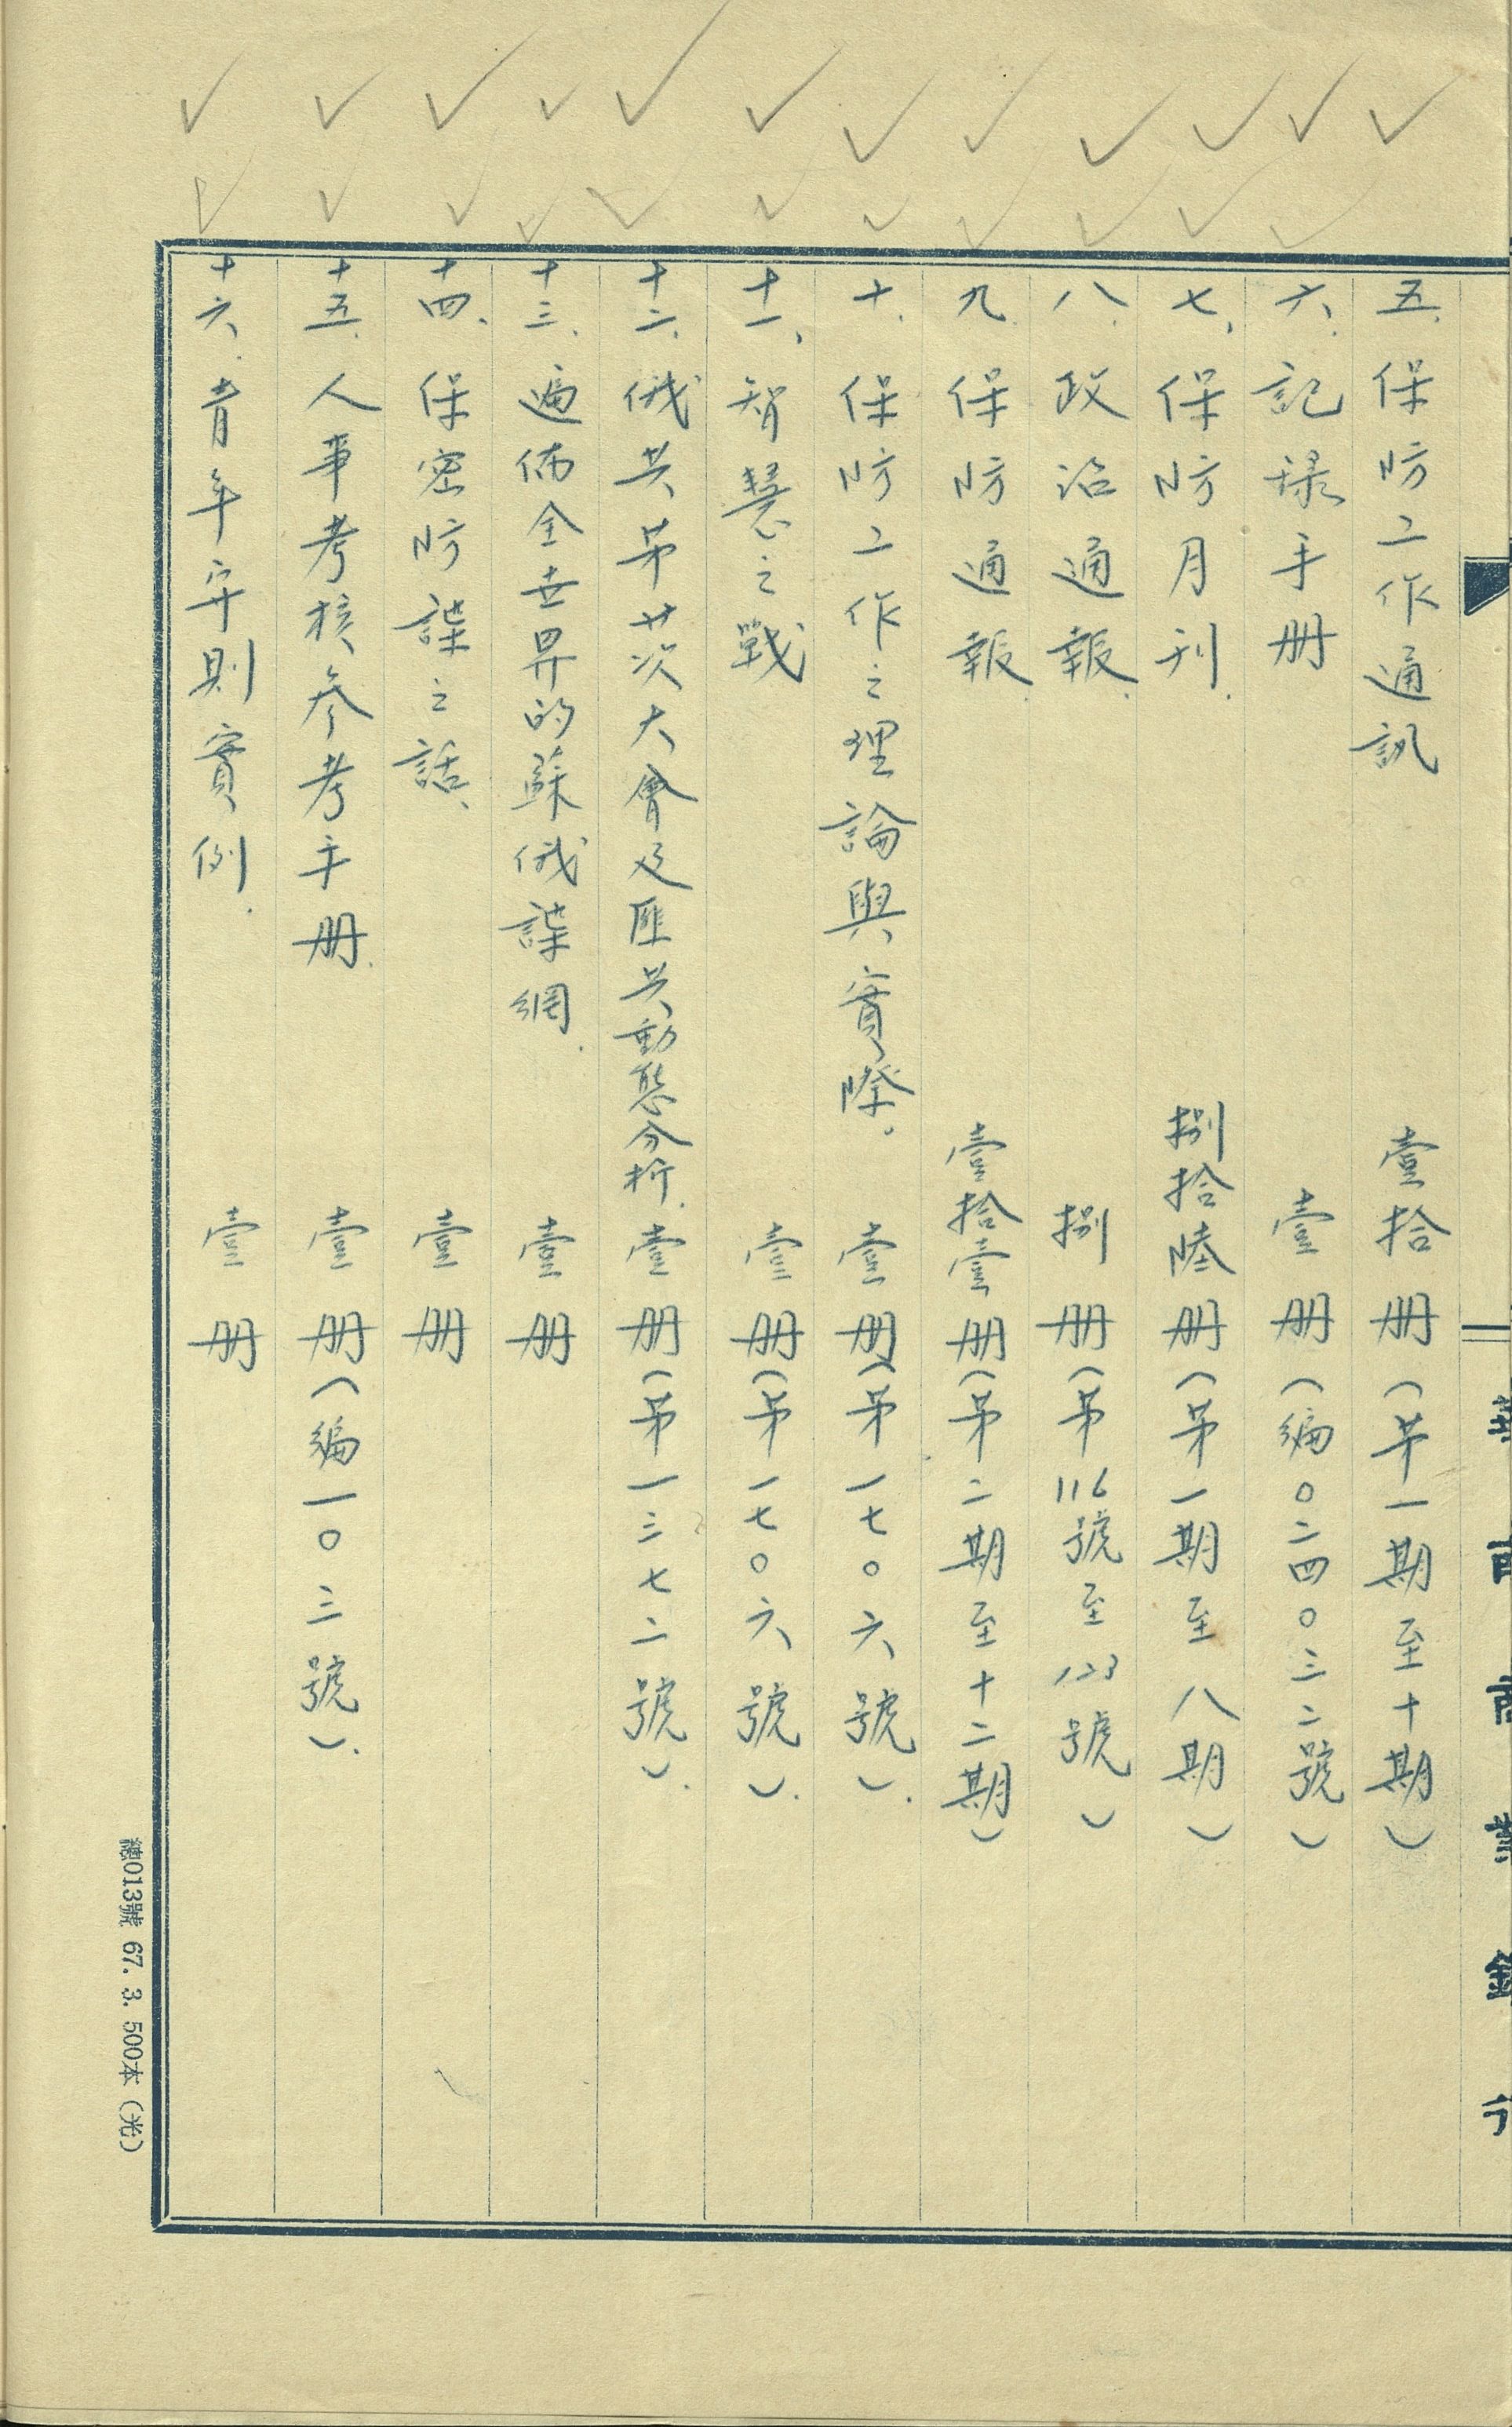 五、保防工作通訊 壹拾册（苐一期至十期）
六、記錄手册 壹册（編〇二四〇三二號）
七、保防月刊. 捌拾陸册（苐一期至八期）
八、政治通報. 捌册（苐116號至123號）
九 保防通報. 壹拾壹册（苐二期至十二期）
十、保防工作之理論與實際、 壹册（苐一七〇六號）.
十一、智慧之戰 壹册（苐一七〇六號）.
十二、俄共苐廿次大會及匪共動態分析. 壹册（苐一三七二號）.
十三、遍佈全世界的蘇俄諜網. 壹册
十四、保密防諜之話、 壹册
十五、人事考核參考手册. 壹册（編一〇三號）.
十六、青年守則實例. 壹册
總013號 67. 3. 500本（光）